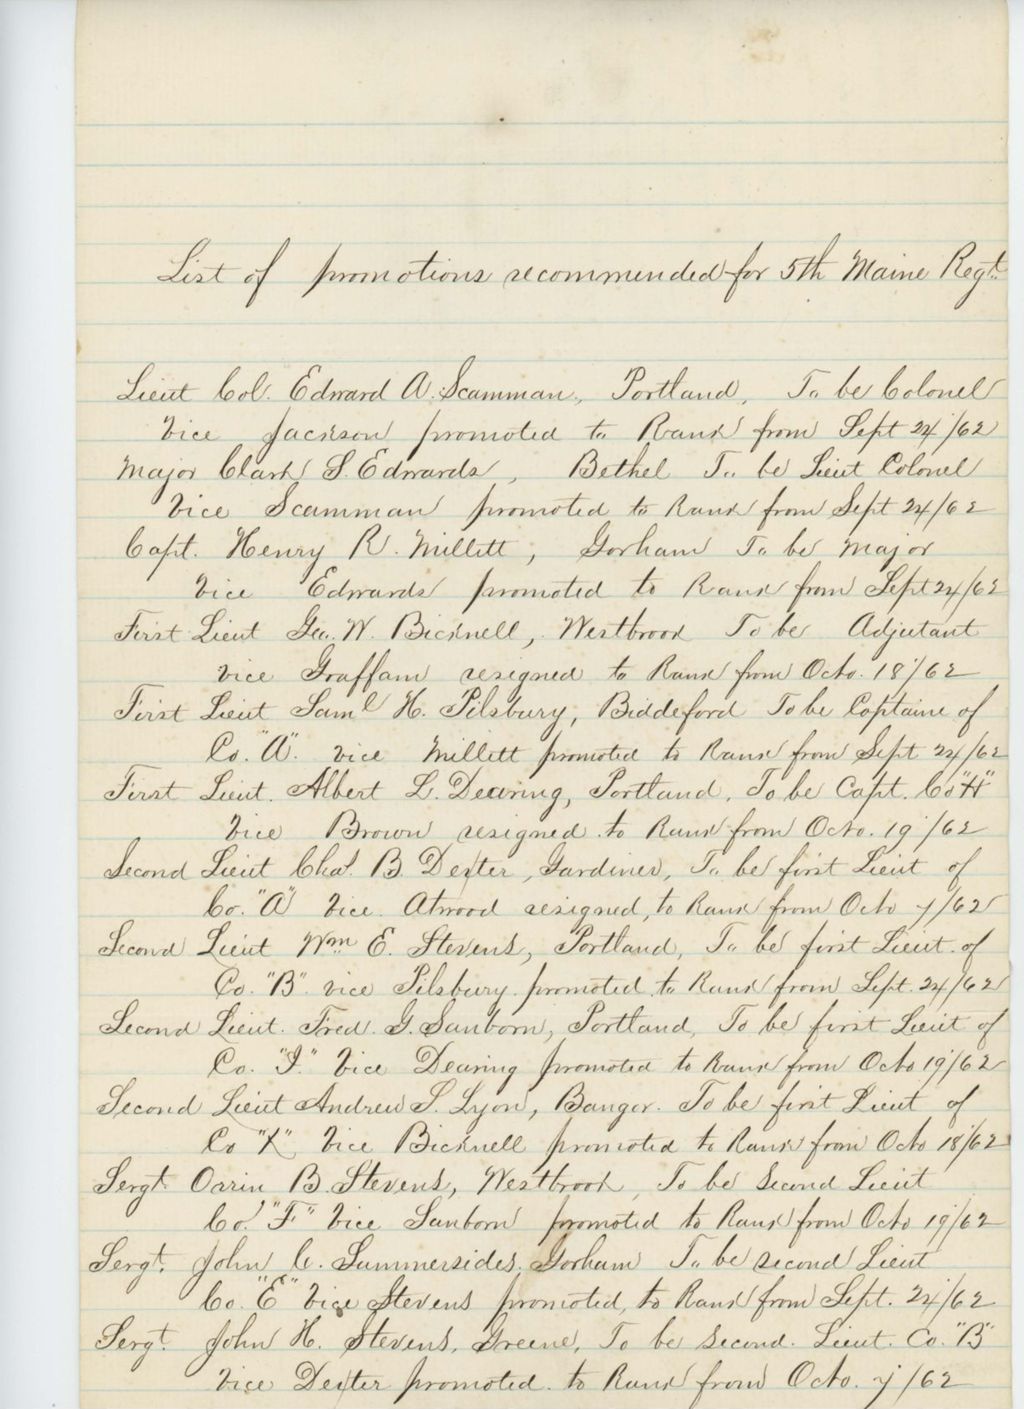 List of promotions recommended for 5th Maine Regt.
Lieut Col. Edward A. Scamman, Portland, To be Colonel
Vice Jackson promoted to Rank from Sept 24/62
Major Clark S. Edwards, Bethel To be Lieut Colonel
Vice Scamman promoted to Rank from Sept 24/62
Capt. Henry R. Millett, Gorham To be Major
Vice Edwards promoted to Rank from Sept 24/62
First Lieut Geo. W. Bicknell, Westbrook To be Adjutant
vice Graffam resigned to Rank from Octo. 18/62
First Lieut Saml H. Pilsbury, Biddeford To be Captaine of
Co. "A". vice Millett promoted to Rank from Sept 24/62
First Lieut. Albert L. Dearing, Portland. To be Capt. Co "H"
Vice Brown resigned to Rank from Octo. 19/62
Second Lieut Chas. B. Dexter, Gardiner, To be first Lieut of
Co. "A" Vice Atwood resigned, to Rank from Octo 7/62
Second Lieut Wm E. Stevens, Portland, To be first Lieut. of
Co. "B" vice Pilsbury promoted to Rank from Sept. 24/62
Second Lieut. Fred. G. Sanborn, Portland, To be first Lieut of
Co. "I." Vice Dearing promoted to Rank from Octo 19/62
Second Lieut Andrew S. Lyon, Bangor. To be first Lieut of
Co "K" Vice Bicknell promoted to Rank from Octo 18/62
Sergt. Orrin B. Stevens, Westbrook, To be Second Lieut
Co. "F" Vice Sanborn promoted to Rank from Octo 19/62
Sergt. John C. Summersides, Gorham To be second Lieut
Co. "E" Vice Stevens promoted, to Rank from Sept. 24/62
Sergt. John H. Stevens, Greene, To be Second. Lieut. Co. "B"
Vice Dexter promoted to Rank from Octo. 7/62